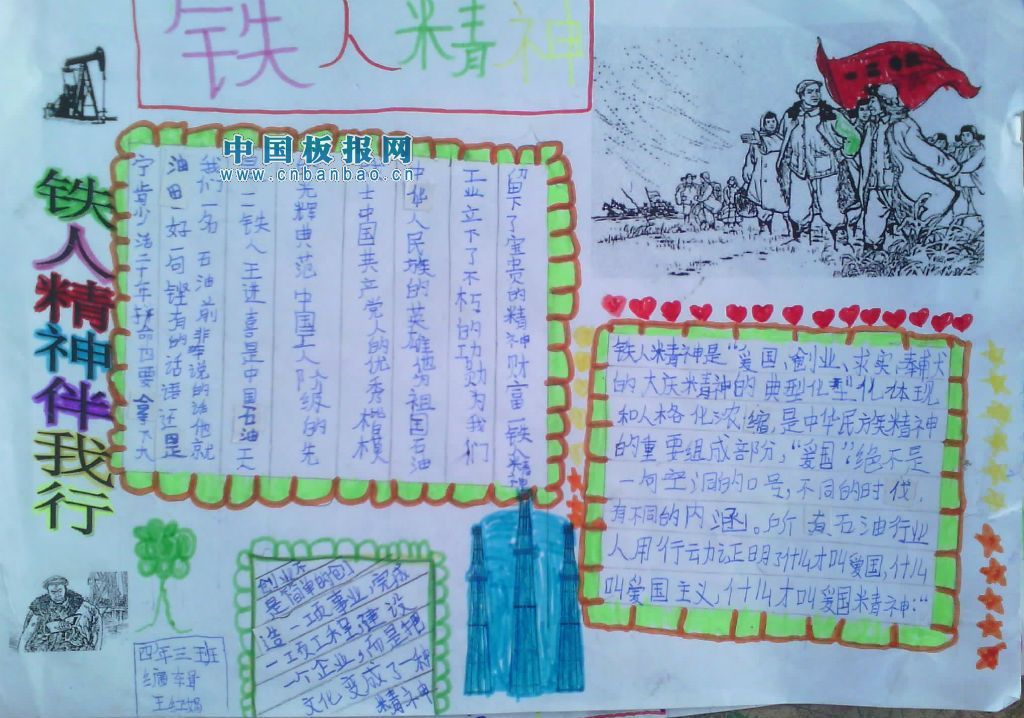 铁人精神
中国板报网
www.cnbanbao.cn
铁人精神伴我行
宁肯少活二十年拼命四要拿下大
油田 好一句铿有的话语 还是
一名 石油前 说的话他就
是一铁人 王进喜是中国石油工人
先 典范 中国工人阶级的先
士中国共产党人的优秀楷模
中华人民族的英雄他为祖国石油
工业立下了不朽的功勋为我们
留下了宝贵的精神财富—铁人精神
铁人精神是“爱国、创业、求实、奉献
的大庆精神的典型化型化体现
和人格化浓缩,是中华民族精神
的重要组成部分,“爱国”绝不是
一句空洞的口号,不同的时代,
有不同的内涵。所有石油行业
人用行云力证明了什么才叫爱国,什么
叫爱国主义,什么才叫爱国精神:“
创业不
是简单的创
造一项事业,完成
一项工程建设
一个企业,而是把
文化变成了一种
精神
四年三班
编辑
王红娟